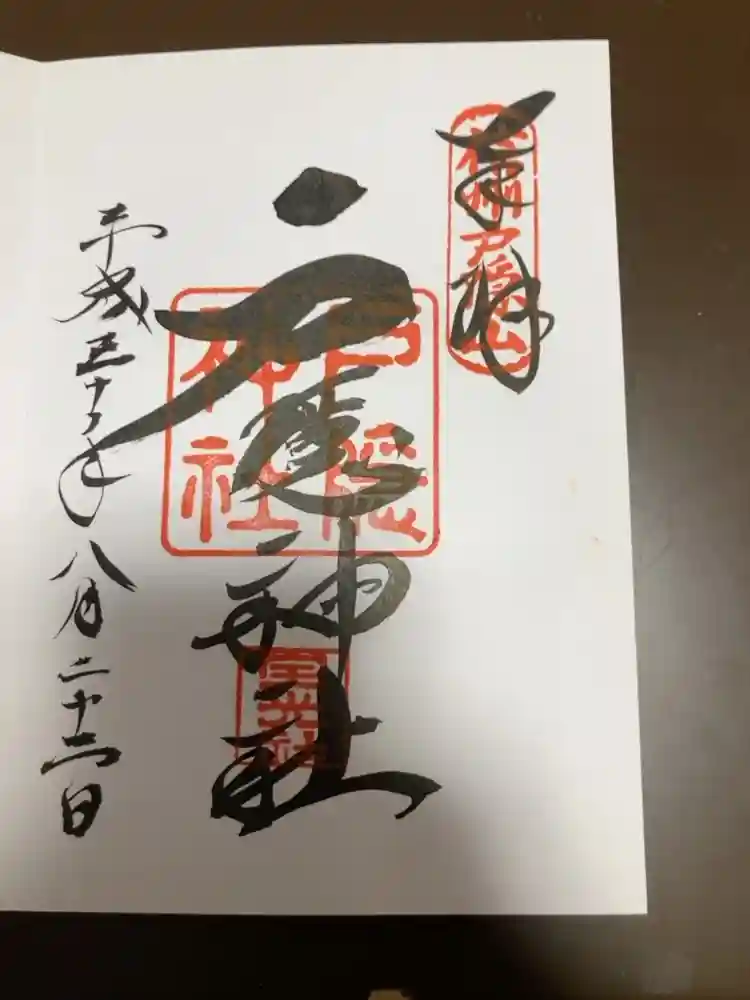 奉拝
信州戸隠山
戸隠神社
戸隠
神社
宝光社
平成三十年八月二十三日